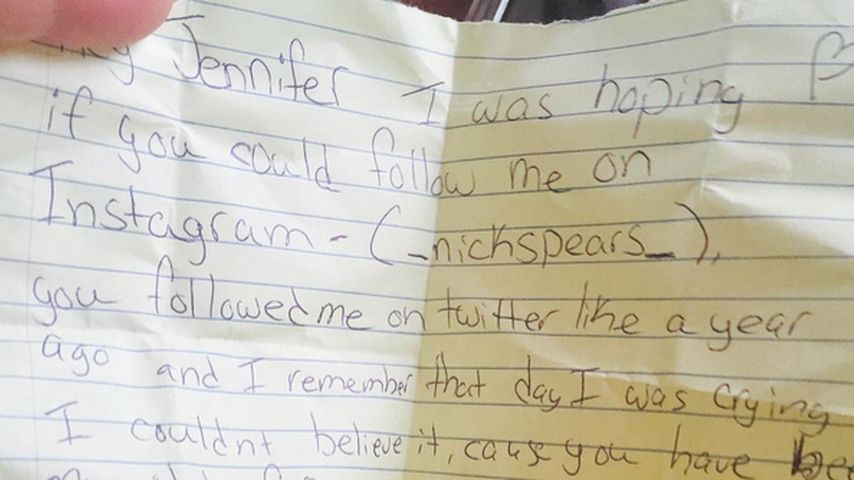 Jennifer I was hoping
if you could follow me on
Instagram - (_nickspears_),
you followed me on twitter like a year
ago and I remember that day I was crying
I couldnt believe it, cause you have